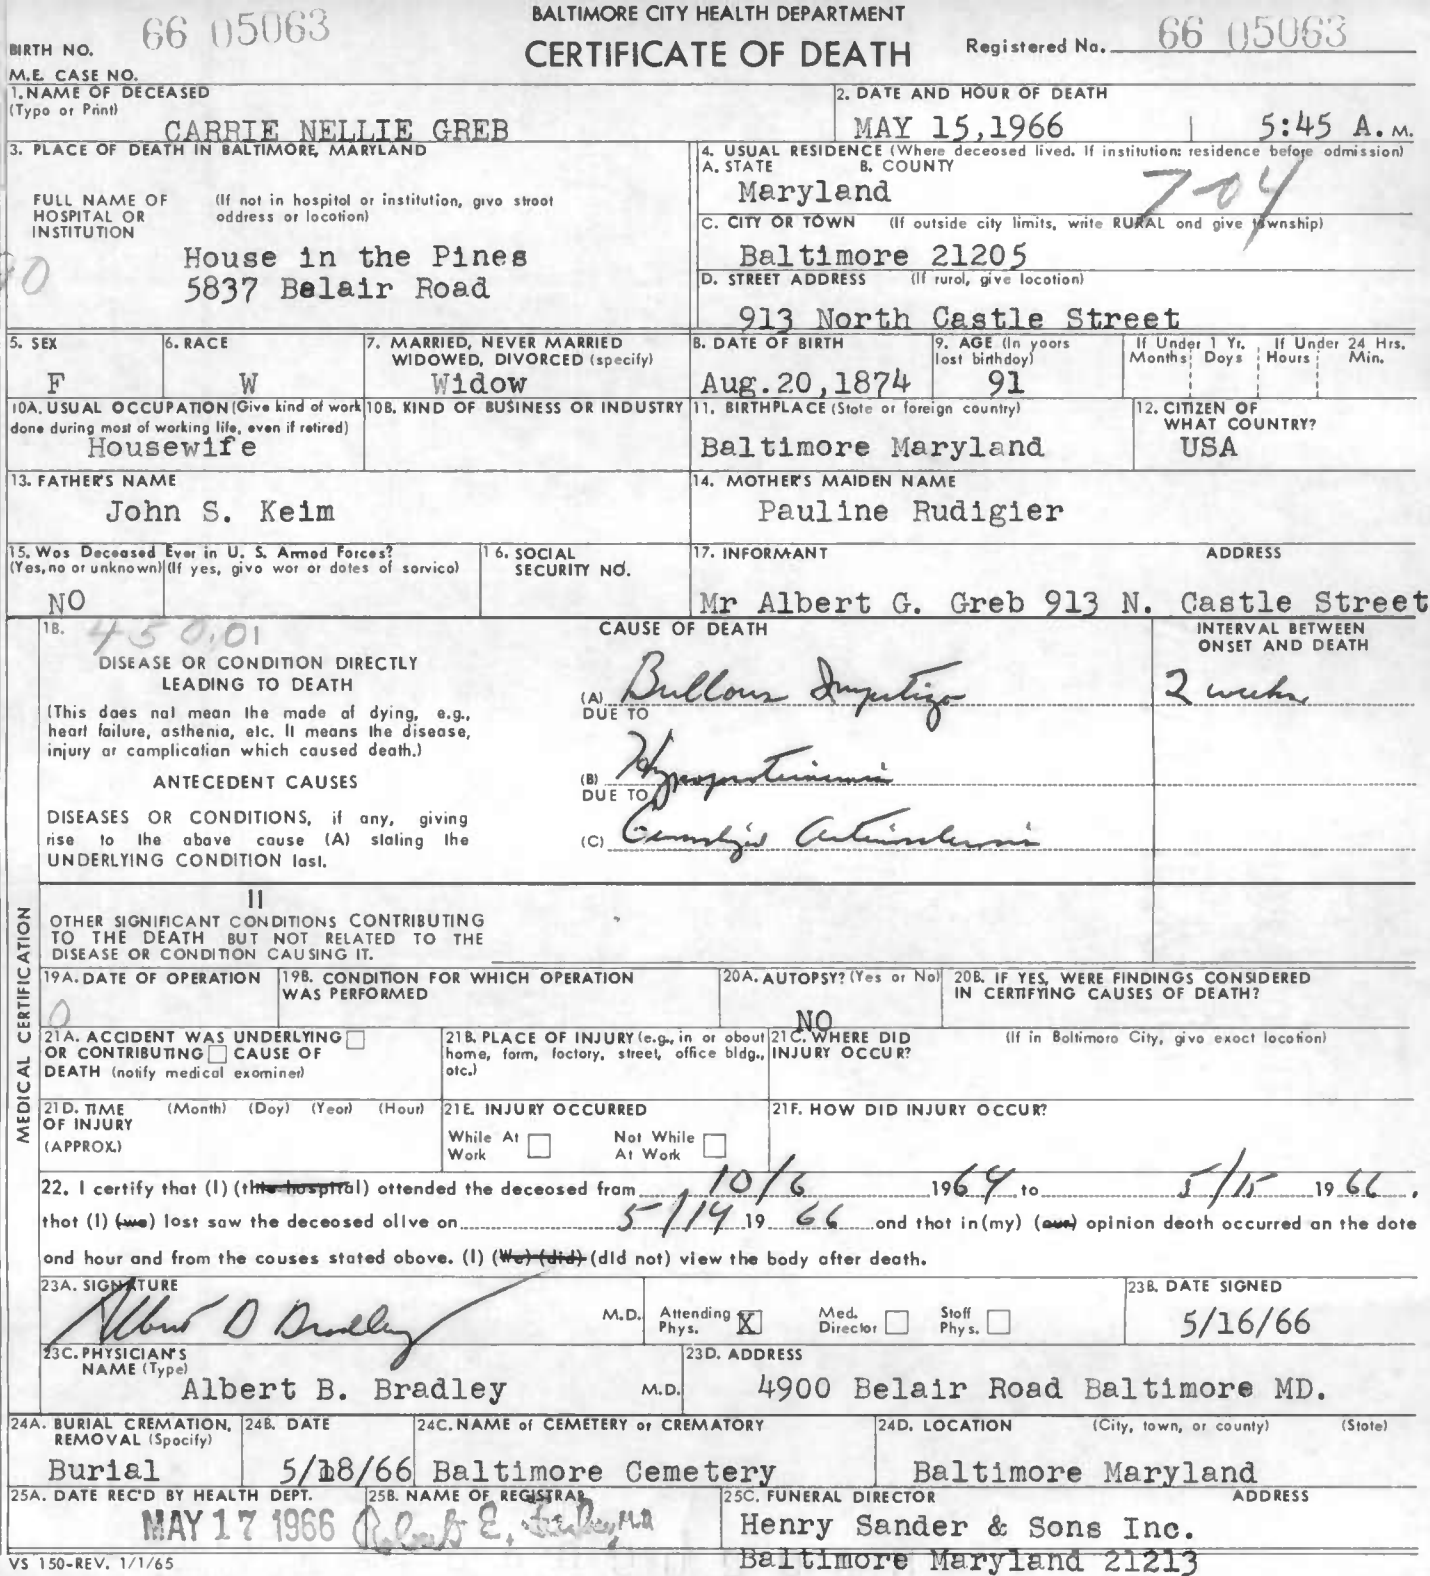 BALTIMORE CITY HEALTH DEPARTMENT
CERTIFICATE OF DEATH
BIRTH NO. 66 05063
Registered No. 66 05063
M.E. CASE NO.
1. NAME OF DECEASED
(Type or Print)
CARRIE NELLIE GREB
2. DATE AND HOUR OF DEATH
MAY 15, 1966 5:45 A. M.
3. PLACE OF DEATH IN BALTIMORE, MARYLAND
FULL NAME OF HOSPITAL OR INSTITUTION
(If not in hospital or institution, give street address or location)
House in the Pines
5837 Belair Road
90
4. USUAL RESIDENCE (Where deceased lived. If institution: residence before admission)
A. STATE B. COUNTY
Maryland 7-04
C. CITY OR TOWN (If outside city limits, write RURAL and give township)
Baltimore 21205
D. STREET ADDRESS (If rural, give location)
913 North Castle Street
5. SEX
F
6. RACE
W
7. MARRIED, NEVER MARRIED
WIDOWED, DIVORCED (specify)
Widow
8. DATE OF BIRTH
Aug. 20, 1874
9. AGE (In years
last birthday)
91
If Under 1 Yr.
Months Days
If Under 24 Hrs.
Hours Min.
10A. USUAL OCCUPATION (Give kind of work
done during most of working life, even if retired)
Housewife
10B. KIND OF BUSINESS OR INDUSTRY
11. BIRTHPLACE (State or foreign country)
Baltimore Maryland
12. CITIZEN OF
WHAT COUNTRY?
USA
13. FATHER'S NAME
John S. Keim
14. MOTHER'S MAIDEN NAME
Pauline Rudigier
15. Was Deceased Ever in U. S. Armed Forces?
(Yes, no or unknown) (If yes, give war or dates of service)
NO
16. SOCIAL
SECURITY NO.
17. INFORMANT ADDRESS
Mr Albert G. Greb 913 N. Castle Street
18. 450.01
CAUSE OF DEATH
INTERVAL BETWEEN
ONSET AND DEATH
DISEASE OR CONDITION DIRECTLY
LEADING TO DEATH
(This does not mean the mode of dying, e.g.,
heart failure, asthenia, etc. It means the disease,
injury or complication which caused death.)
ANTECEDENT CAUSES
DISEASES OR CONDITIONS, if any, giving
rise to the above cause (A) stating the
UNDERLYING CONDITION last.
(A) Bullous Impetigo 2 weeks
DUE TO
(B) Hypoproteinemia
DUE TO
(C) Generalized Arteriosclerosis
MEDICAL CERTIFICATION
II
OTHER SIGNIFICANT CONDITIONS CONTRIBUTING
TO THE DEATH BUT NOT RELATED TO THE
DISEASE OR CONDITION CAUSING IT.
19A. DATE OF OPERATION
0
19B. CONDITION FOR WHICH OPERATION
WAS PERFORMED
20A. AUTOPSY? (Yes or No)
NO
20B. IF YES, WERE FINDINGS CONSIDERED
IN CERTIFYING CAUSES OF DEATH?
21A. ACCIDENT WAS UNDERLYING
OR CONTRIBUTING CAUSE OF
DEATH (notify medical examiner)
21B. PLACE OF INJURY (e.g., in or about
home, farm, factory, street, office bldg.,
etc.)
21C. WHERE DID
INJURY OCCUR?
(If in Baltimore City, give exact location)
21D. TIME (Month) (Day) (Year) (Hour)
OF INJURY
(APPROX.)
21E. INJURY OCCURRED
While At
Work
Not While
At Work
21F. HOW DID INJURY OCCUR?
22. I certify that (I) (this hospital) attended the deceased from 10/6 1964 to 5/15 1966,
that (I) (we) last saw the deceased alive on 5/14 19 66 and that in (my) (our) opinion death occurred on the date
and hour and from the causes stated above. (I) (We) (did) (did not) view the body after death.
23A. SIGNATURE
Albert D Bradley M.D.
Attending
Phys. X
Med.
Director
Staff
Phys.
23B. DATE SIGNED
5/16/66
23C. PHYSICIAN'S
NAME (Type)
Albert B. Bradley M.D.
23D. ADDRESS
4900 Belair Road Baltimore MD.
24A. BURIAL CREMATION,
REMOVAL (Specify)
Burial
24B. DATE
5/18/66
24C. NAME of CEMETERY or CREMATORY
Baltimore Cemetery
24D. LOCATION (City, town, or county) (State)
Baltimore Maryland
25A. DATE REC'D BY HEALTH DEPT.
MAY 17 1966
25B. NAME OF REGISTRAR
Robert E. Farber, M.D.
25C. FUNERAL DIRECTOR ADDRESS
Henry Sander & Sons Inc.
Baltimore Maryland 21213
VS 150-REV. 1/1/65